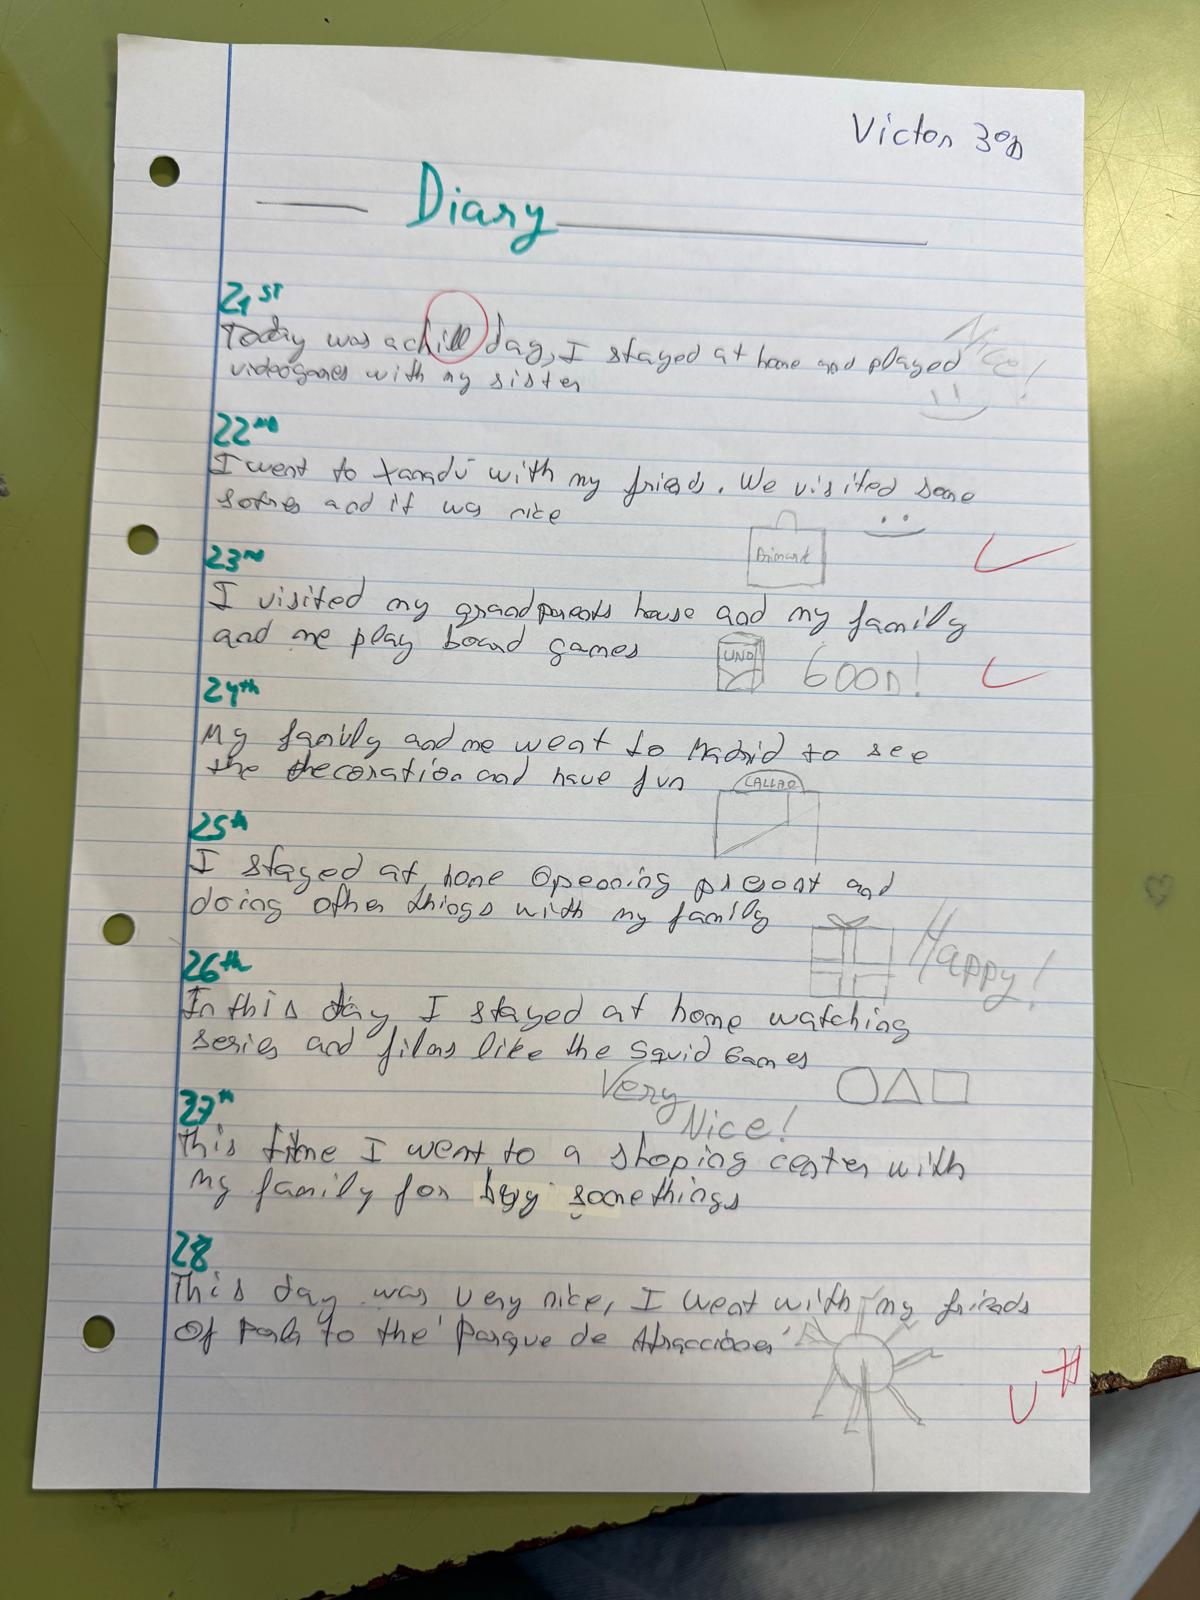 Victor 3ºD
Diary
21ST
Today was a chill day, I stayed at home and played
Nice!
videogames with my sister
22ND
I went to Xanadú with my friends. We visited some
sotres and it was nice
Primark
23RD
I visited my grandparents house and my family
and me play board games
UNO
GOOD!
24th
My family and me went to Madrid to see
the decoration and have fun
CALLAO
25th
I stayed at home opening present and
doing other things with my family
Happy!
26th
In this day I stayed at home watching
series and films like the Squid Games
Very
Nice!
27th
this time I went to a shoping center with
my family for buy somethings
28
This day was very nice, I went with my friends
Of to the 'Parque de Atracciones'